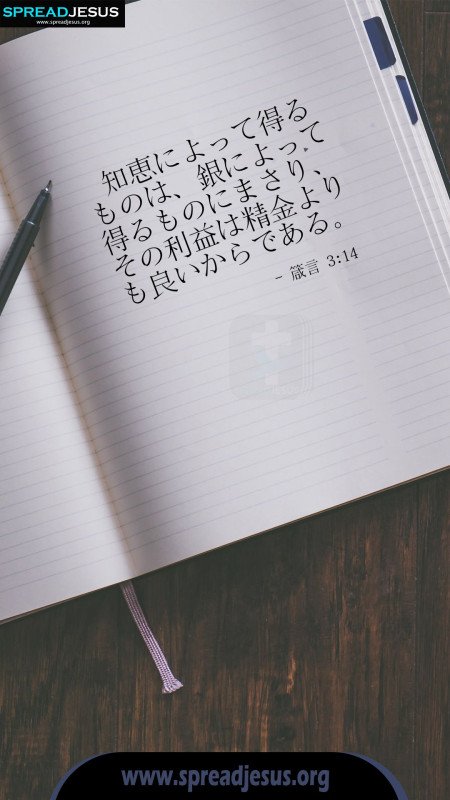 SPREADJESUS
www.spreadjesus.org
知恵によって得る
ものは、銀によって
得るものにまさり、
その利益は精金より
も良いからである。
– 箴言 3:14
www.spreadjesus.org